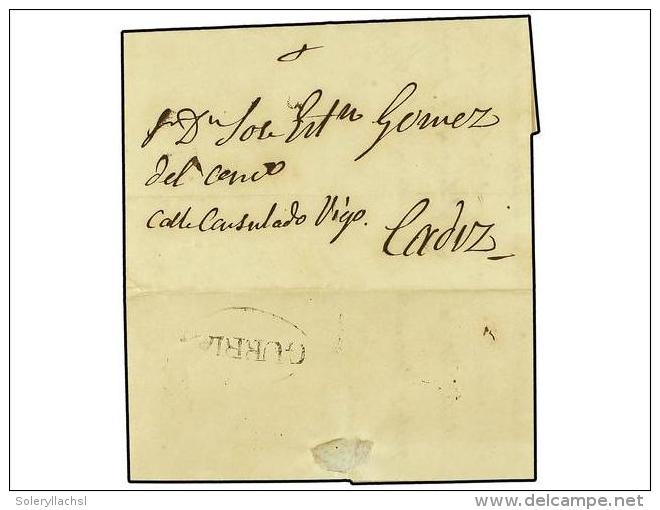 Sr Dn Jose Estn Gomez
del cerro
Calle Consulado Viejo.
Cadiz
Soleryllachsl
delcampe.net